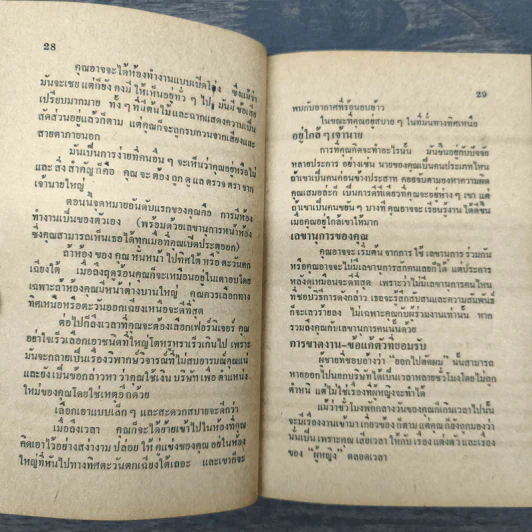 28
คุณอาจจะได้ห้องทำงานแบบเปิดโล่ง ซึ่งแม้ว่า
มันจะเชย แต่ก็ยังคงมีให้เห็นอยู่ทั่ว ๆ ไป มันมีข้อเสีย
เปรียบมากมาย ทั้ง ๆ ที่มีต้นไม้และฉากแสดงความเป็น
สัดส่วนอยู่แล้วก็ตาม แต่คุณก็จะถูกรบกวนจากเสียงและ
สายตาภายนอก
มันเป็นการง่ายที่คนอื่น ๆ จะเห็นว่าคุณอยู่หรือไม่
และสิ่งสำคัญก็คือ คุณจะต้องถูกดูแลตรวจตราจาก
เจ้านายใหญ่
ตอนนี้จุดหมายอันดับแรกของคุณคือ การมีห้อง
ทำงานเป็นของตัวเอง (พร้อมด้วยเลขานุการหน้าห้อง
ซึ่งคุณสามารถเห็นเธอได้ทุกเมื่อที่คุณเปิดประตูออก)
ถ้าห้องของคุณหันหน้าไปทิศใต้หรือตะวันตก
เฉียงใต้ เมื่อถึงฤดูร้อนคุณก็จะเหมือนอยู่ในเตาอบโดย
เฉพาะถ้าห้องคุณมีหน้าต่างบานใหญ่ คุณควรเลือกทาง
ทิศเหนือหรือตะวันออกเฉียงเหนือจะดีที่สุด
ต่อไปก็ถึงเวลาที่คุณจะต้องเลือกเฟอร์นิเจอร์ คุณ
อย่าใจเร็วเลือกเอาชนดีที่ใหญ่โตหรูหราร่วมเกินไป เพราะ
มันจะกลายเป็นเรื่องวิพากษ์วิจารณ์ที่ไม่สบอารมณ์คุณแน่
และยังเป็นข้อกล่าวหาว่าคุณใช้เงินบริษัทเพื่อตำแหน่ง
ใหม่ของคุณโดยใช่เหตุอีกด้วย
เลือกเอาแบบเล็ก ๆ และสะดวกสบายจะดีกว่า
เมื่อถึงเวลา คุณก็จะได้ย้ายเข้าไปในห้องที่คุณ
คิดเอาไว้อย่างสง่างาม ปล่อยให้คู่แข่งของคุณอยู่ในห้อง
ใหญ่ที่หันไปทางทิศตะวันตกเฉียงใต้เถอะ และเขาก็จะ
29
พบกับอากาศที่ร้อนอบอ้าว
ในขณะที่คุณอยู่สบาย ๆ ในที่มั่นทางทิศเหนือ
อยู่ใกล้ ๆ เจ้านาย
การที่คุณคิดจะทำอะไรนั้น มันขึ้นอยู่กับปัจจัย
หลายประการ อย่างเช่น นายของคุณเป็นคนประเภทไหน
ถ้าเขาเป็นคนค่อนข้างประสาท คอยจับตามองหาความผิด
คุณเสมอละก็ เป็นการดีทีเดียวที่คุณจะอยู่ห่าง ๆ เขา แต่
ถ้าเขาเป็นคนขยัน ๆ บางทีคุณอาจจะเรียนรู้งานได้ดีขึ้น
เมื่อคุณอยู่ใกล้เขาให้มาก
เลขานุการของคุณ
คุณอาจจะเริ่มต้นจากการใช้เลขานุการร่วมกัน
หรือคุณอาจจะไม่มีเลขานุการสักคนเลยก็ได้ แต่ประสาร
หลังดูเหมือนจะดีที่สุด เพราะว่าไม่มีเลขานุการคนไหน
ที่ชอบวิธีการดังกล่าว เธอจะรู้สึกสับสนและความสัมพันธ์
ก็จะเลวร้ายลง ไม่เฉพาะคุณกับผู้ร่วมงานเท่านั้น หาก
รวมถึงคุณกับเลขานุการคนนั้นด้วย
การขาดงาน-ข้อแก้ตัวที่ยอมรับ
ผู้ชายที่ชอบอ้างว่า "ออกไปตัดผม" นั้นสามารถ
หายไปนอกบริษัทได้เป็นเวลาหลายชั่วโมงโดยไม่ถูก
ตำหนิ แต่ไม่ใช่เรื่องที่ผู้หญิงจะทำได้
แม้ว่าชั่วโมงพักกลางวันของคุณก็เกินเวลาไปนั้น
จะมีเรื่องงานเข้ามาเกี่ยวข้องก็ตาม แต่คุณก็ยังถูกมองว่า
นั่นเป็นเพราะคุณเสียเวลาให้กับเรื่องแต่งตัวและเรื่อง
ของ "ผู้หญิง" ตลอดเวลา